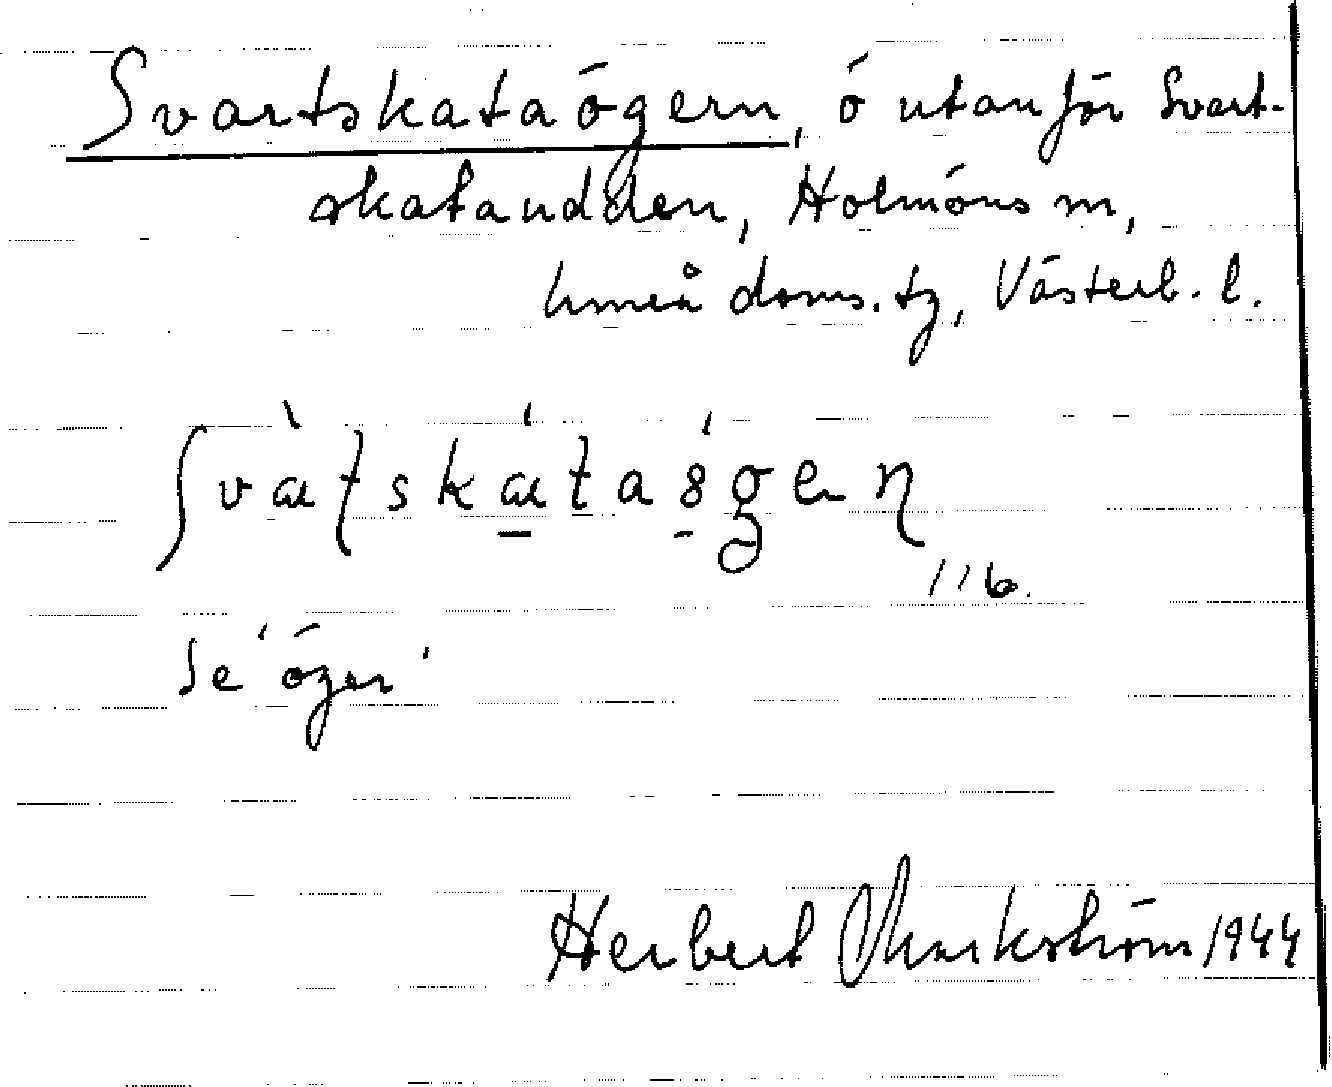 Svartskataögern, ö utanför Svart-
skataudden, Holmöns sn,
Umeå doms. tg, Västerb. l.
116.
Se 'öger'
Herbert Markström 1944